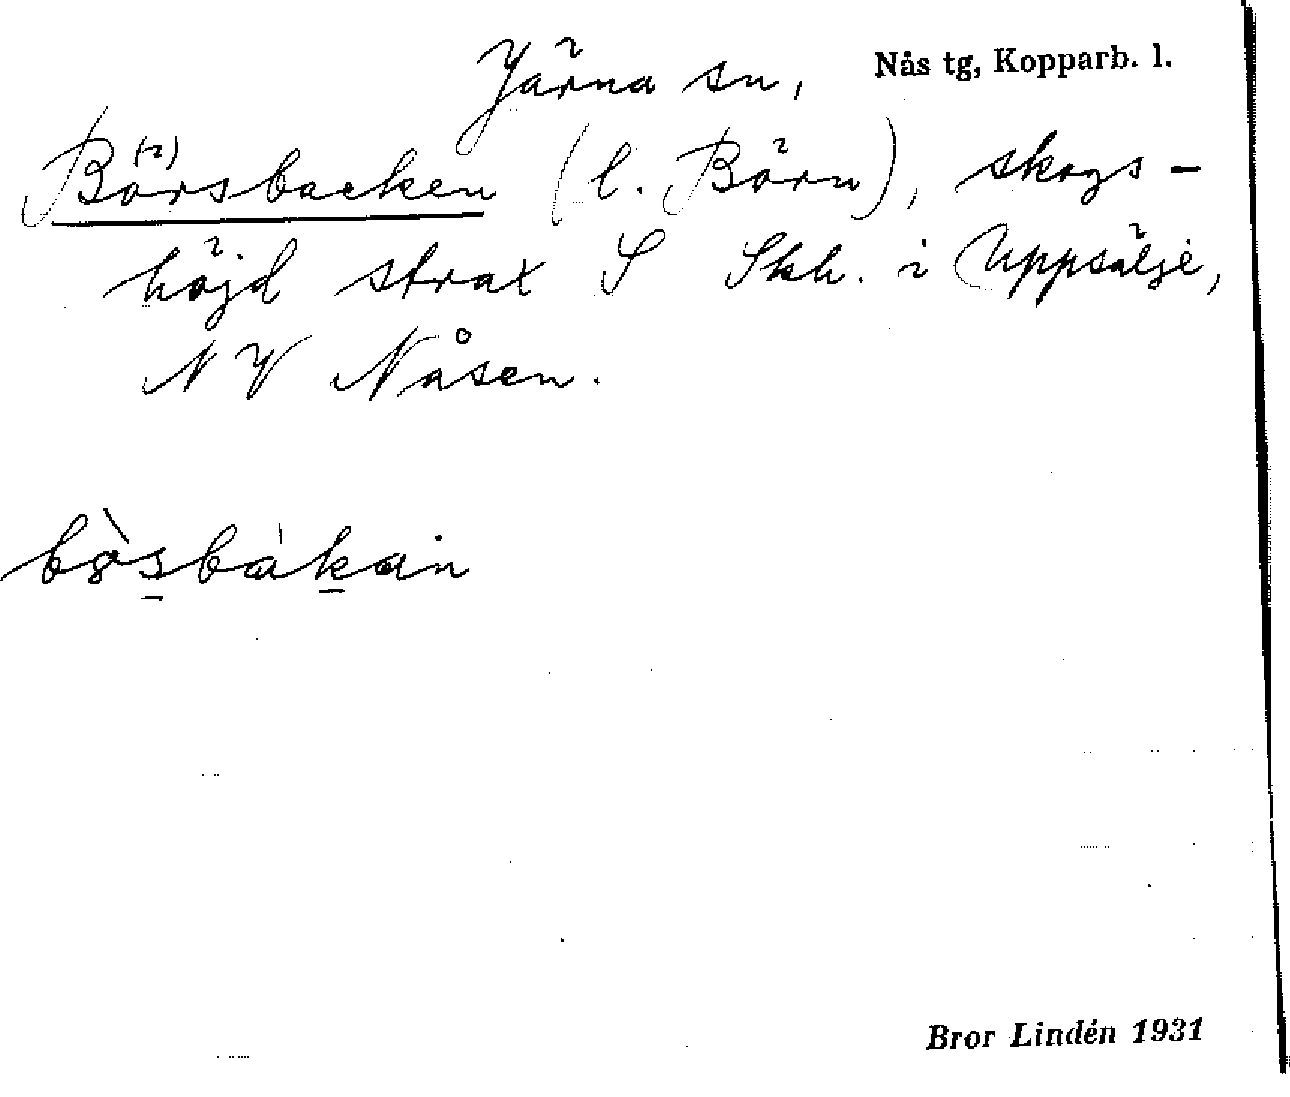 Järna sn, Nås tg, Kopparb. l.
Börsbacken (l. Börn), skogs-
höjd strax S Skh. i Uppsälje,
NV Nåsen.
Bror Lindén 1931